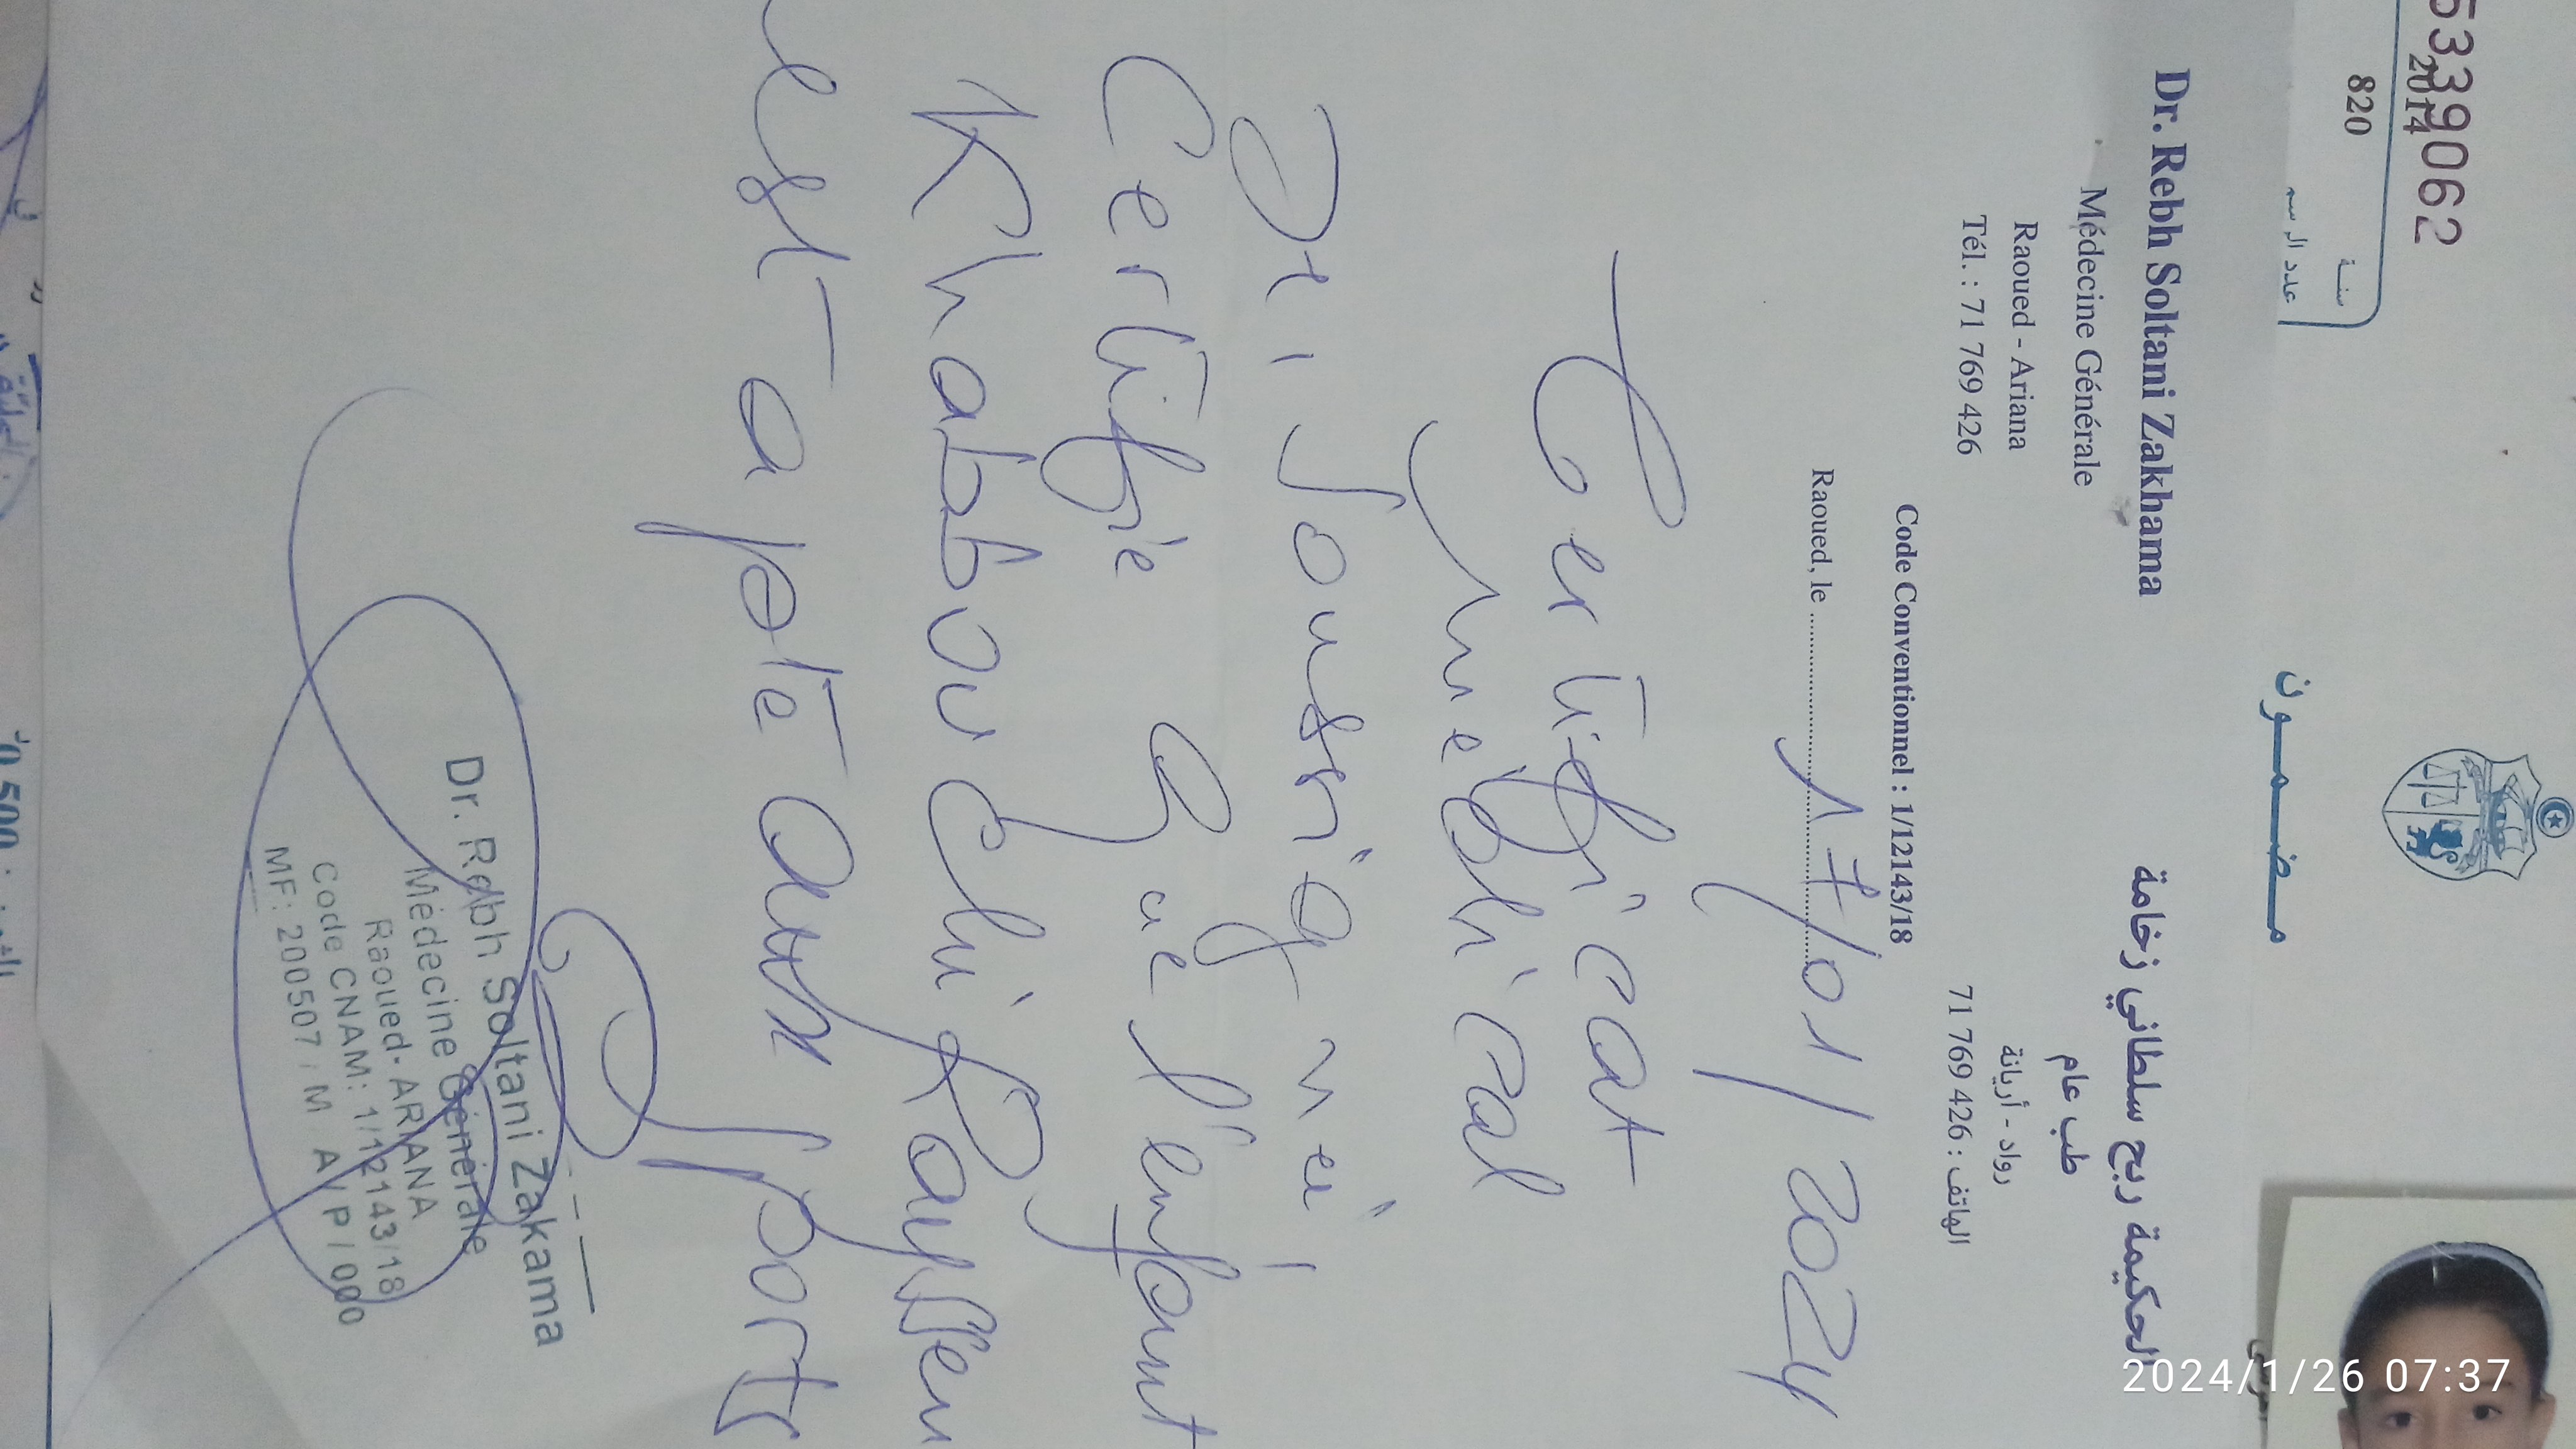 5339062
2014
820
سنة
عدد الرسم
مضمون
Dr. Rebh Soltani Zakhama
Médecine Générale
Raoued - Ariana
Tél. : 71 769 426
الحكيمة ربح سلطاني زخامة
طب عام
رواد - أريانة
الهاتف : 71 769 426
Code Conventionnel : 1/12143/18
Raoued, le 17/01/2024
Certificat
médical
Je, soussigné,
Certifie que l'enfant
Khabbouchi Rayssen
est apte aux sports
Dr. Rebh Soltani Zakama
Médecine Générale
Raoued- ARIANA
Code CNAM: 1/12143/18
MF: 200507/M A/P/000
2024/1/26 07:37